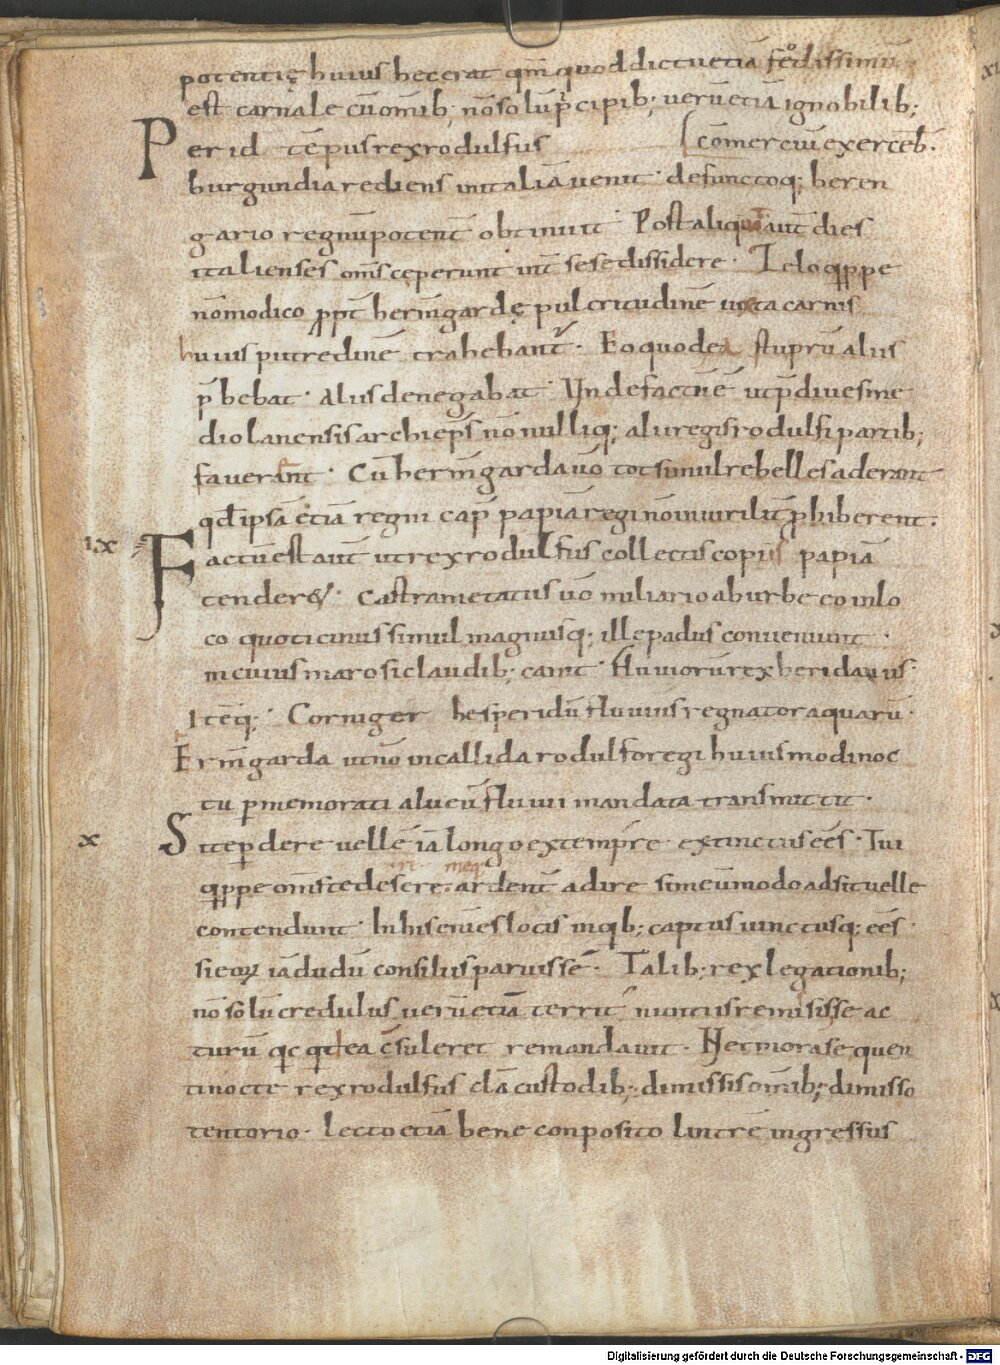 potentię huius hęc erat qm̄ quod dictu etiā foedissimū
est carnale cū omib; nō solū p̄cipib; uerū etiā ignobilib;
Per id tēpus rex rodulfus [cōmerciū exerceb.
burgundia rediens in italiā uenit · defunctoq; beren
gario regnū potent̄ obtinuit · Post aliquot aut̄ dies
italienses om̄s cęperunt int̄ sese dissidere · Zelo q̄ppe
nō modico p̄pt̄ herm̄gardę pulcritudinē iuxta carnis
huius putredinē trahebant̄ · Eo quod ea stuprū aliis
p̄bebat · aliis denegabat · Unde factū ē ut p̄diues me
diolanensis archiep̄s nōnulliq; alii regis rodulfi partib;
fauerint · Cū herm̄garda uō tot simul rebelles aderant
qd̄ ipsā etiā regni cap̄ papiā regi nō inuiriliter p̄hiberent.
ıx
Factū est aut̄ ut rex rodulfus collectis copiis papiā
tenderet · castrametatus uō miliario ab urbe eo in lo
co quo ticinus simul magnusq; ille padus conueniunt ·
in cuius maro sic laudib; canit · Fluuiorū rex heridanus ·
Itēq; · Corniger hesperidū fluuius regnator aquarū ·
Erm̄garda ut nō incallida rodulfo regi huiusmodi noc
tu p memorati alueū fluuii mandata transmittit ·
x
Si te perdere uellē iā longo ex tempre extinctus ees̄ · Tui
q̄ppe om̄s te deserere · meq; ardent̄ adire si meū modo adsit uelle
contendunt · In his enī es locis in qb; captus uinctusq; ees̄ ·
si eorum iādudū consiliis paruissē · Talib; rex legationib;
nō solū credulus uerū etiā territ' nuntius remisisse ac
turū qc qd ea c̄suleret remandauit · Nec mora sequen
ti nocte rex rodulfus clā custodib; · dimissis omib; dimisso
tentorio · lecto etiā bene conposito lintrē ingressus
Digitalisierung gefördert durch die Deutsche Forschungsgemeinschaft - DFG